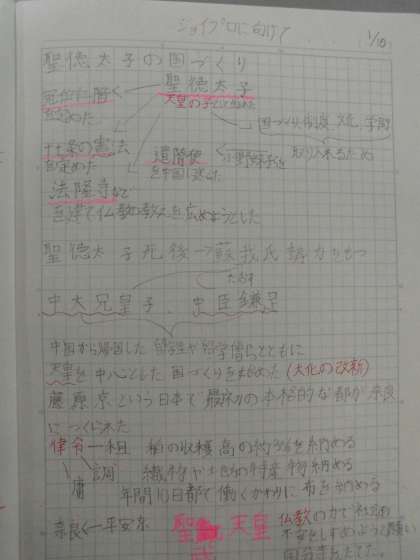 ジョイプロに向けて
1/18
聖徳太子の国づくり
聖徳太子
冠位十二階
を定めた
天皇の子として生まれた
国づくり 制度 文化 学問
取り入れるため
十七条の憲法
を定めた
遣隋使
小野妹子
を中国に送った
法隆寺など
を建て仏教の教えを広めようとした
聖徳太子死後→蘇我氏勢力をもつ
たおす
中大兄皇子、中臣鎌足
中国から帰国した留学生や留学僧らとともに
天皇を中心とした国づくりを始めた(大化の改新)
藤原京という日本で最初の本格的な都が奈良
につくられた
律令―租 稲の収穫高の約3%を納める
調 織物や土地の特産物を納める
庸 年間10日都で働くかわりに布を納める
奈良
平安京
聖
天皇
仏教の力で社会の
不安をしずめようと願い